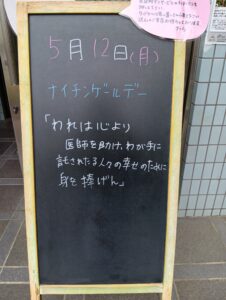 5月12日(月)
ナイチンゲールデー
「われは心より
医師を助け、わが手に
託されたる人々の幸せのために
身を捧げん」